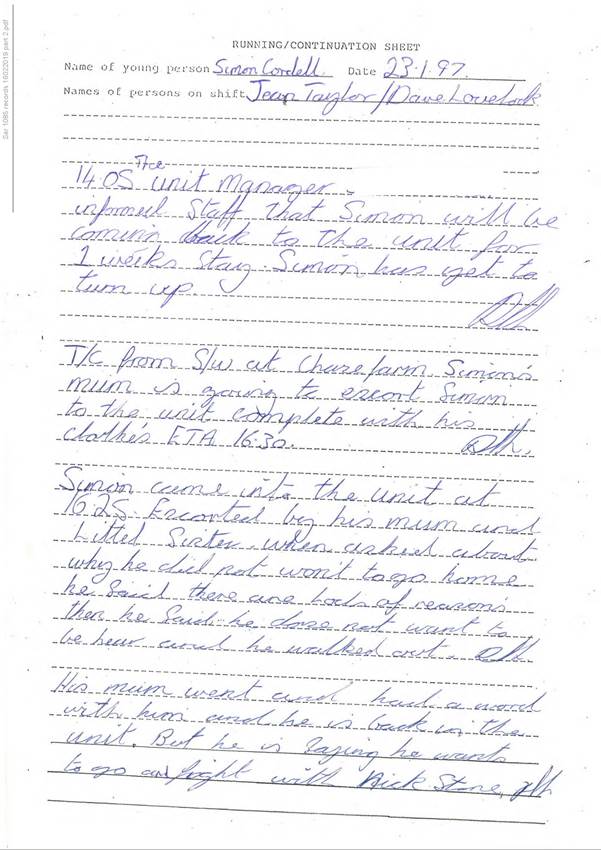 Sar 1085 records 16022019 part 2.pdf
RUNNING/CONTINUATION SHEET
Name of young person Simon Cordell. Date 23.1.97.
Names of persons on shift Jean Taylor/Dave Lovelock
The
14.05 Unit Manager -
informed Staff that Simon will be
coming back to the unit for
1 weeks stay. Simon has yet to
turn up.
T/C from S/W at Chase farm Simon's
mum is going to escort Simon
to the unit complete with his
clothes ETA 16:30.
Simon came into the unit at
16.25. Escorted by his mum and
Littel Sister. when asked about
why he did not won't to go home
he said there are lods of reasons
then he Said he dose not want to
be hear and he walked out.
His mum went and had a word
with him and he is back in the
unit. But he is saying he wants
to go a fight with Nick Stone,